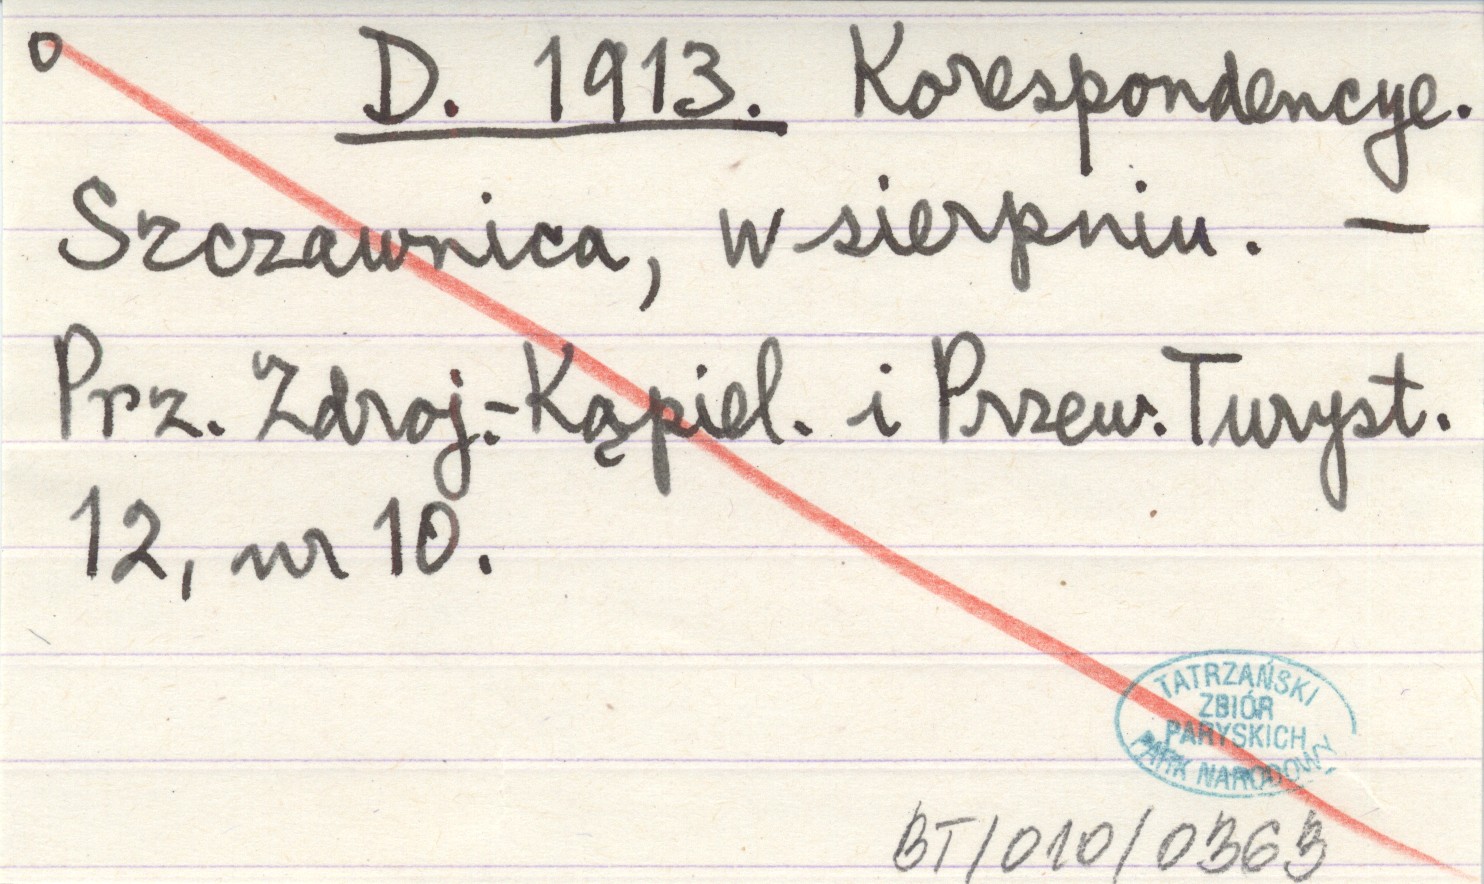 o D. 1913. Korespondencye.
Szczawnica, w sierpniu. –
Prz. Zdroj.-Kąpiel. i Przew. Turyst.
12, nr 10.
TATRZAŃSKI
ZBIÓR
PARYSKICH
PARK NARODOWY
BT/010/0363